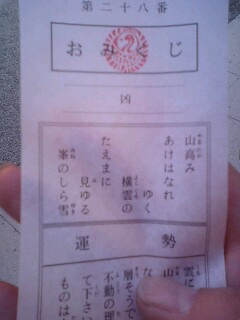 第二十八番
おみくじ
凶
山高み
あけはなれ
ゆく
横雲の
たえまに
見ゆる
峯のしら雪
運勢
雲に
山
な
層そうで
不動の理
て下さい
ものは